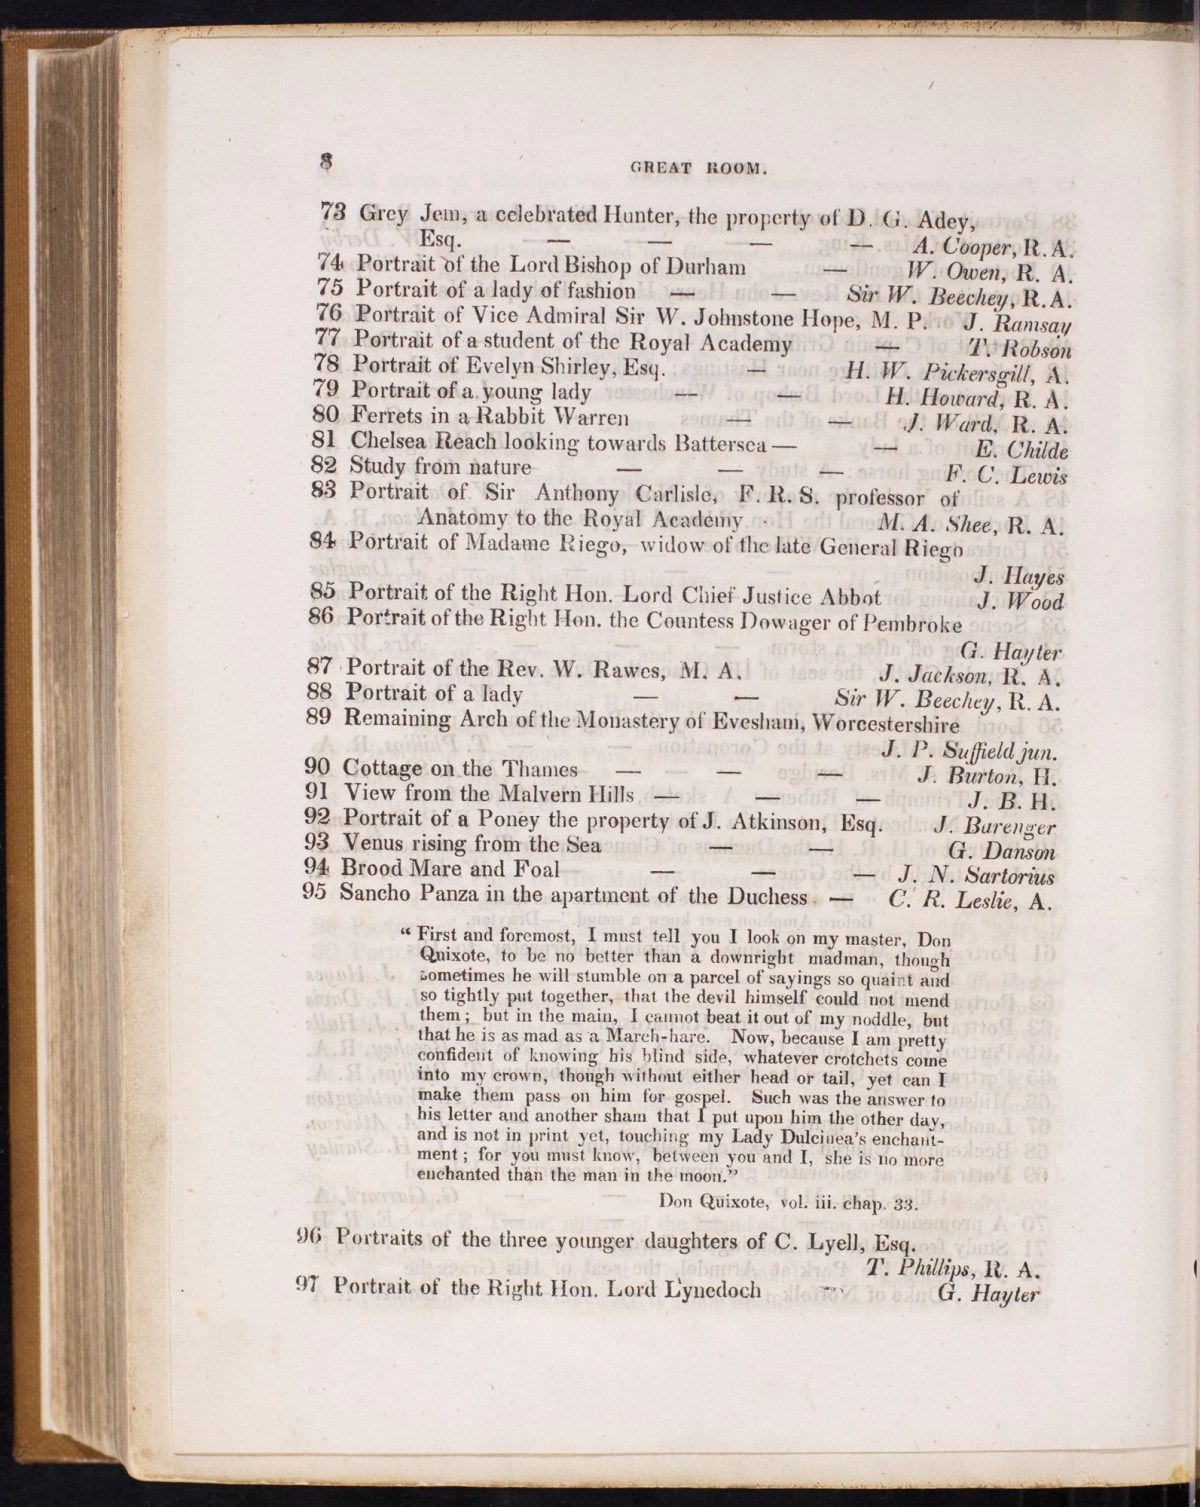 8 GREAT ROOM.
73 Grey Jem, a celebrated Hunter, the property of D. G. Adey,
Esq. — — — — A. Cooper, R. A.
74 Portrait of the Lord Bishop of Durham — W. Owen, R. A.
75 Portrait of a lady of fashion — — Sir W. Beechey, R. A.
76 Portrait of Vice Admiral Sir W. Johnstone Hope, M. P. J. Ramsay
77 Portrait of a student of the Royal Academy — T. Robson
78 Portrait of Evelyn Shirley, Esq. — H. W. Pickersgill, A.
79 Portrait of a young lady — — H. Howard, R. A.
80 Ferrets in a Rabbit Warren — — J. Ward, R. A.
81 Chelsea Reach looking towards Battersea — — E. Childe
82 Study from nature — — — F. C. Lewis
83 Portrait of Sir Anthony Carlisle, F. R. S. professor of
Anatomy to the Royal Academy - M. A. Shee, R. A.
84 Portrait of Madame Riego, widow of the late General Riego
J. Hayes
85 Portrait of the Right Hon. Lord Chief Justice Abbot J. Wood
86 Portrait of the Right Hon. the Countess Dowager of Pembroke
G. Hayter
87 Portrait of the Rev. W. Rawes, M. A. J. Jackson, R. A.
88 Portrait of a lady — — Sir W. Beechey, R. A.
89 Remaining Arch of the Monastery of Evesham, Worcestershire
J. P. Suffield jun.
90 Cottage on the Thames — — — J. Burton, H.
91 View from the Malvern Hills — — — J. B. H.
92 Portrait of a Poney the property of J. Atkinson, Esq. J. Barenger
93 Venus rising from the Sea — — G. Danson
94 Brood Mare and Foal — — — J. N. Sartorius
95 Sancho Panza in the apartment of the Duchess — C. R. Leslie, A.
“ First and foremost, I must tell you I look on my master, Don
Quixote, to be no better than a downright madman, though
sometimes he will stumble on a parcel of sayings so quaint and
so tightly put together, that the devil himself could not mend
them; but in the main, I cannot beat it out of my noddle, but
that he is as mad as a March-hare. Now, because I am pretty
confident of knowing his blind side, whatever crotchets come
into my crown, though without either head or tail, yet can I
make them pass on him for gospel. Such was the answer to
his letter and another sham that I put upon him the other day,
and is not in print yet, touching my Lady Dulcinea's enchant-
ment; for you must know, between you and I, she is no more
enchanted than the man in the moon.”
Don Quixote, vol. iii. chap. 33.
96 Portraits of the three younger daughters of C. Lyell, Esq.
T. Phillips, R. A.
97 Portrait of the Right Hon. Lord Lynedoch — G. Hayter